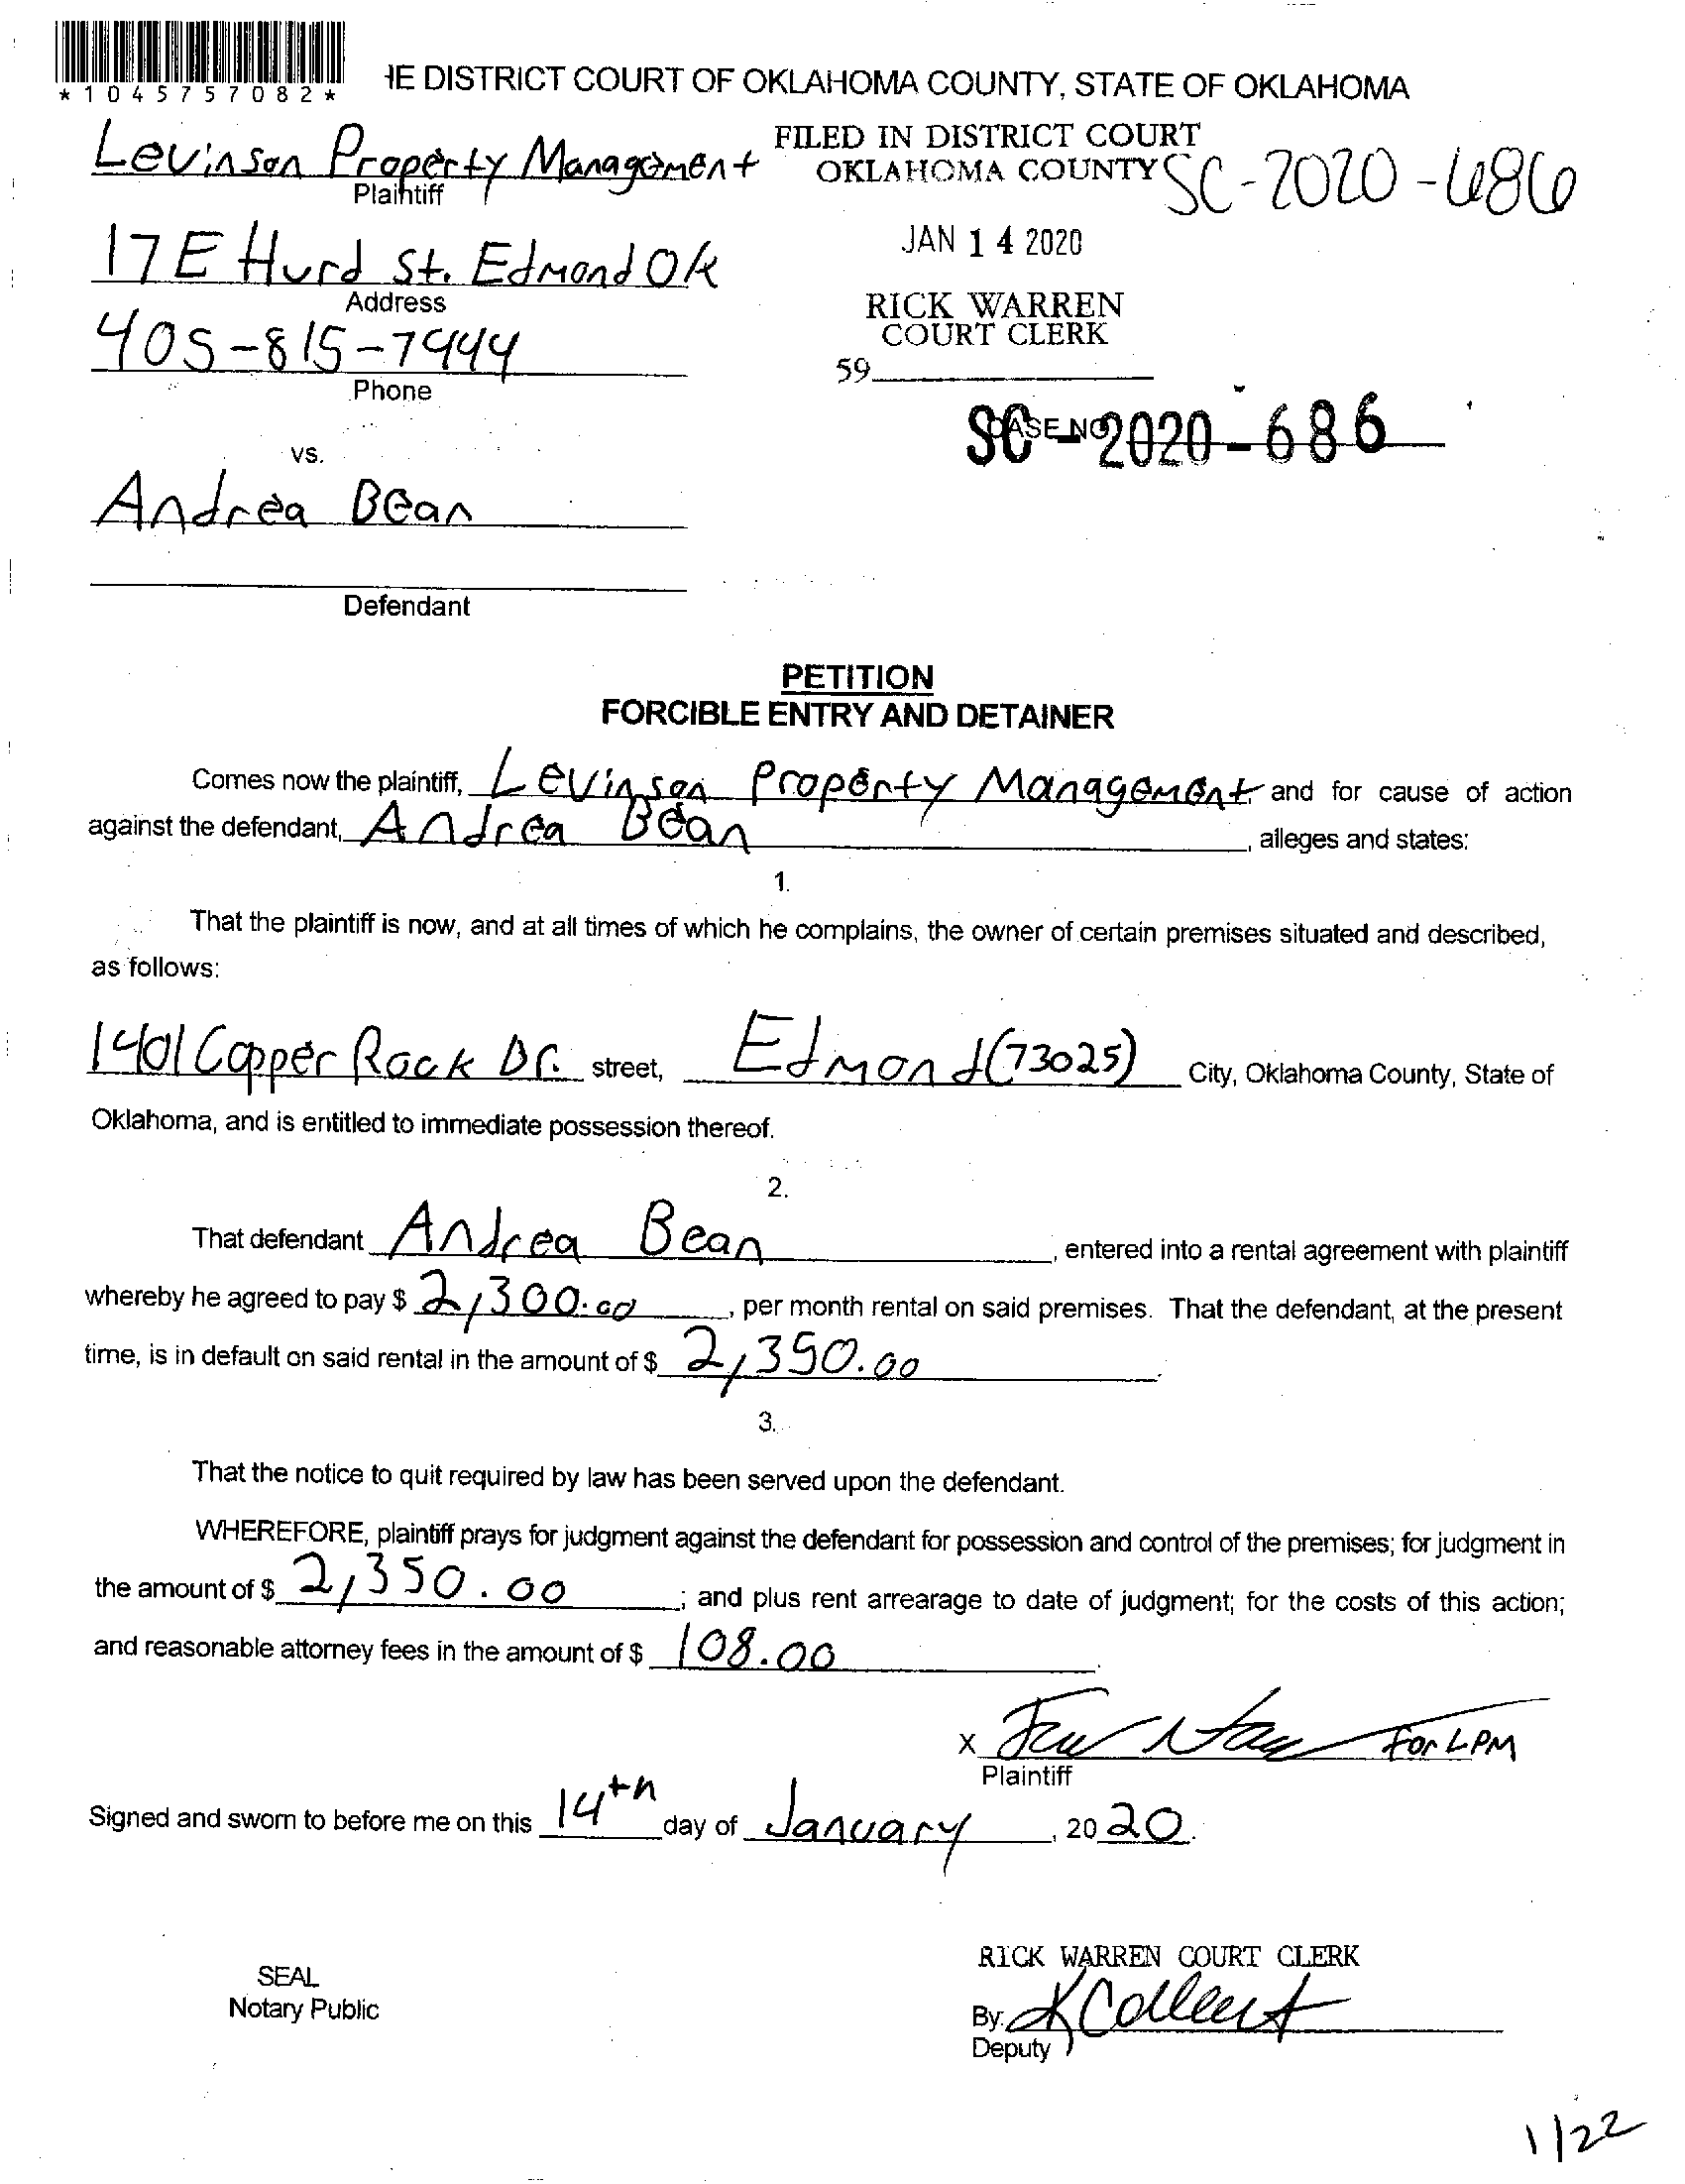 *1045757082*
IE DISTRICT COURT OF OKLAHOMA COUNTY, STATE OF OKLAHOMA
Levinson Property Management
Plaintiff
FILED IN DISTRICT COURT
OKLAHOMA COUNTY
SC-2020-686
17 E Hurd St. Edmond OK
Address
JAN 14 2020
405-815-7444
Phone
RICK WARREN
COURT CLERK
59
CASE NO.
SC-2020-686
vs.
Andrea Bean
Defendant
PETITION
FORCIBLE ENTRY AND DETAINER
Comes now the plaintiff, Levinson Property Management, and for cause of action
against the defendant, Andrea Bean, alleges and states:
1.
That the plaintiff is now, and at all times of which he complains, the owner of certain premises situated and described,
as follows:
1401 Copper Rock Dr. street, Edmond (73025) City, Oklahoma County, State of
Oklahoma, and is entitled to immediate possession thereof.
2.
That defendant Andrea Bean, entered into a rental agreement with plaintiff
whereby he agreed to pay $ 2,300.00, per month rental on said premises. That the defendant, at the present
time, is in default on said rental in the amount of $ 2,350.00.
3.
That the notice to quit required by law has been served upon the defendant.
WHEREFORE, plaintiff prays for judgment against the defendant for possession and control of the premises; for judgment in
the amount of $ 2,350.00; and plus rent arrearage to date of judgment; for the costs of this action;
and reasonable attorney fees in the amount of $ 108.00.
X For LPM
Plaintiff
Signed and sworn to before me on this 14th day of January, 2020.
SEAL
Notary Public
RICK WARREN COURT CLERK
By:
Deputy
1/22